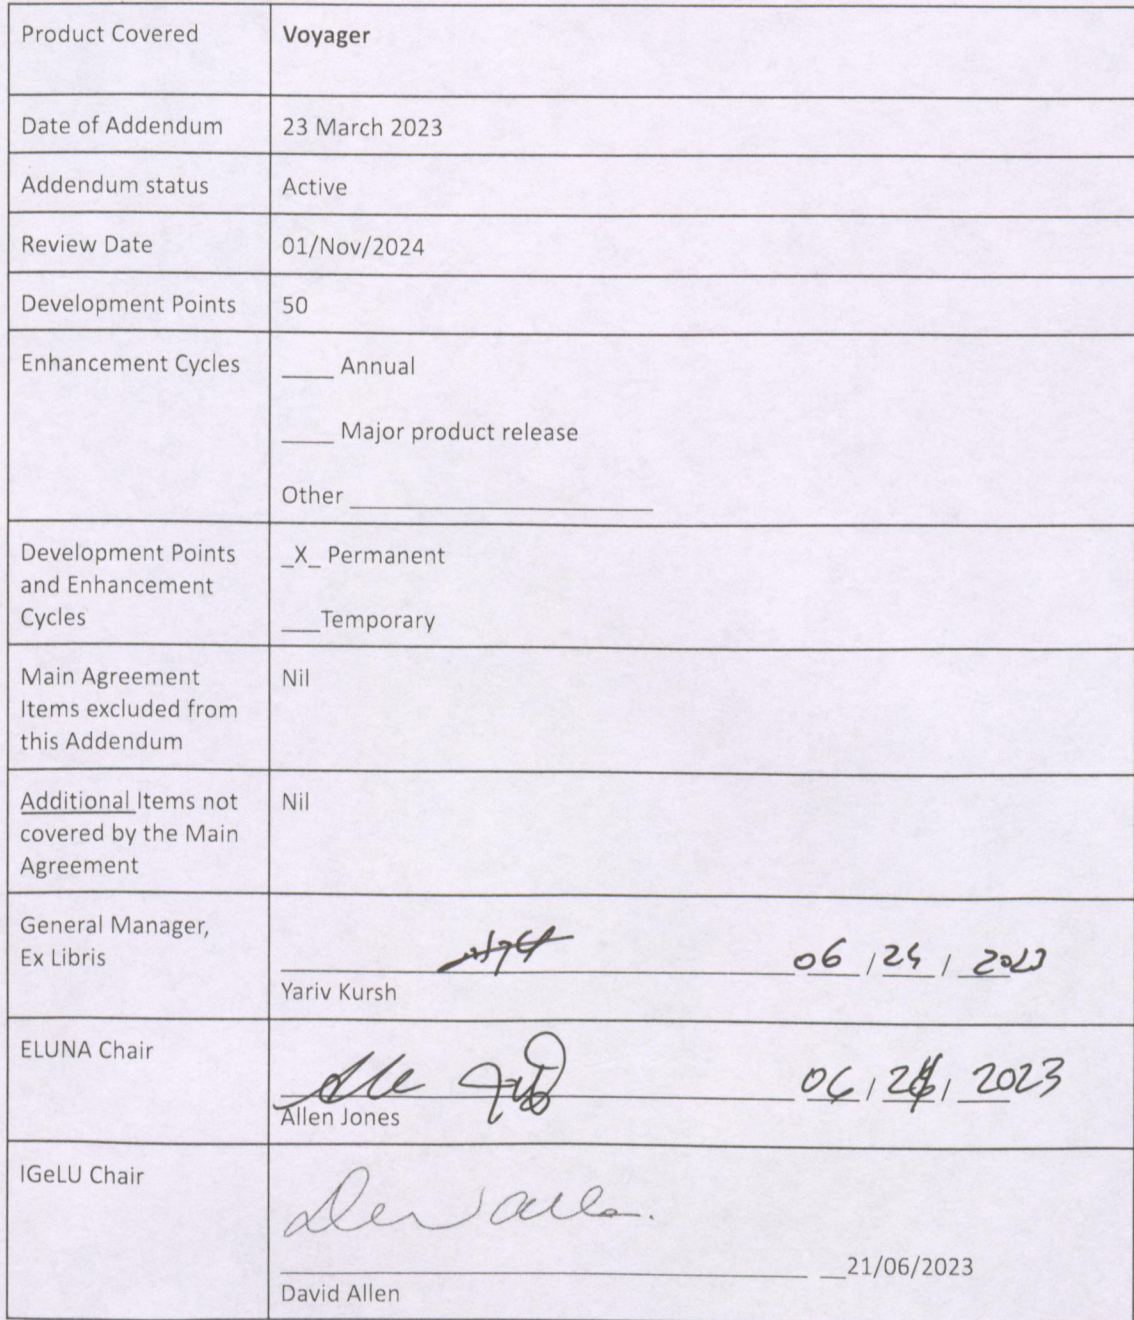 Product Covered
Voyager
Date of Addendum
23 March 2023
Addendum status
Active
Review Date
01/Nov/2024
Development Points
50
Enhancement Cycles
____ Annual
____ Major product release
Other ________________________
Development Points
and Enhancement
Cycles
_X_ Permanent
___Temporary
Main Agreement
Items excluded from
this Addendum
Nil
Additional Items not
covered by the Main
Agreement
Nil
General Manager,
Ex Libris
06 / / 2023
Yariv Kursh
ELUNA Chair
06 / / 2023
Allen Jones
IGeLU Chair
__21/06/2023
David Allen